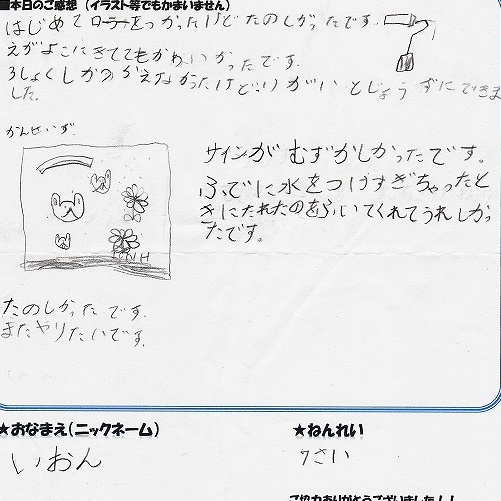 ■本日のご感想（イラスト等でもかまいません）
はじめてローラをつかったけどたのしかったです。
えがよこにきててもかわいかったです。
3しょくしかつかえなかったけどいがいとじょうずにできま
した。
かんせいず
サインがむずかしかったです。
ふでに水をつけすぎちゃったと
きにたれたのをふいてくれてうれしかっ
たです。
たのしかったです。
またやりたいです。
★おなまえ（ニックネーム）
いおん
★ねんれい
7さい
ご協力ありがとうございました！！